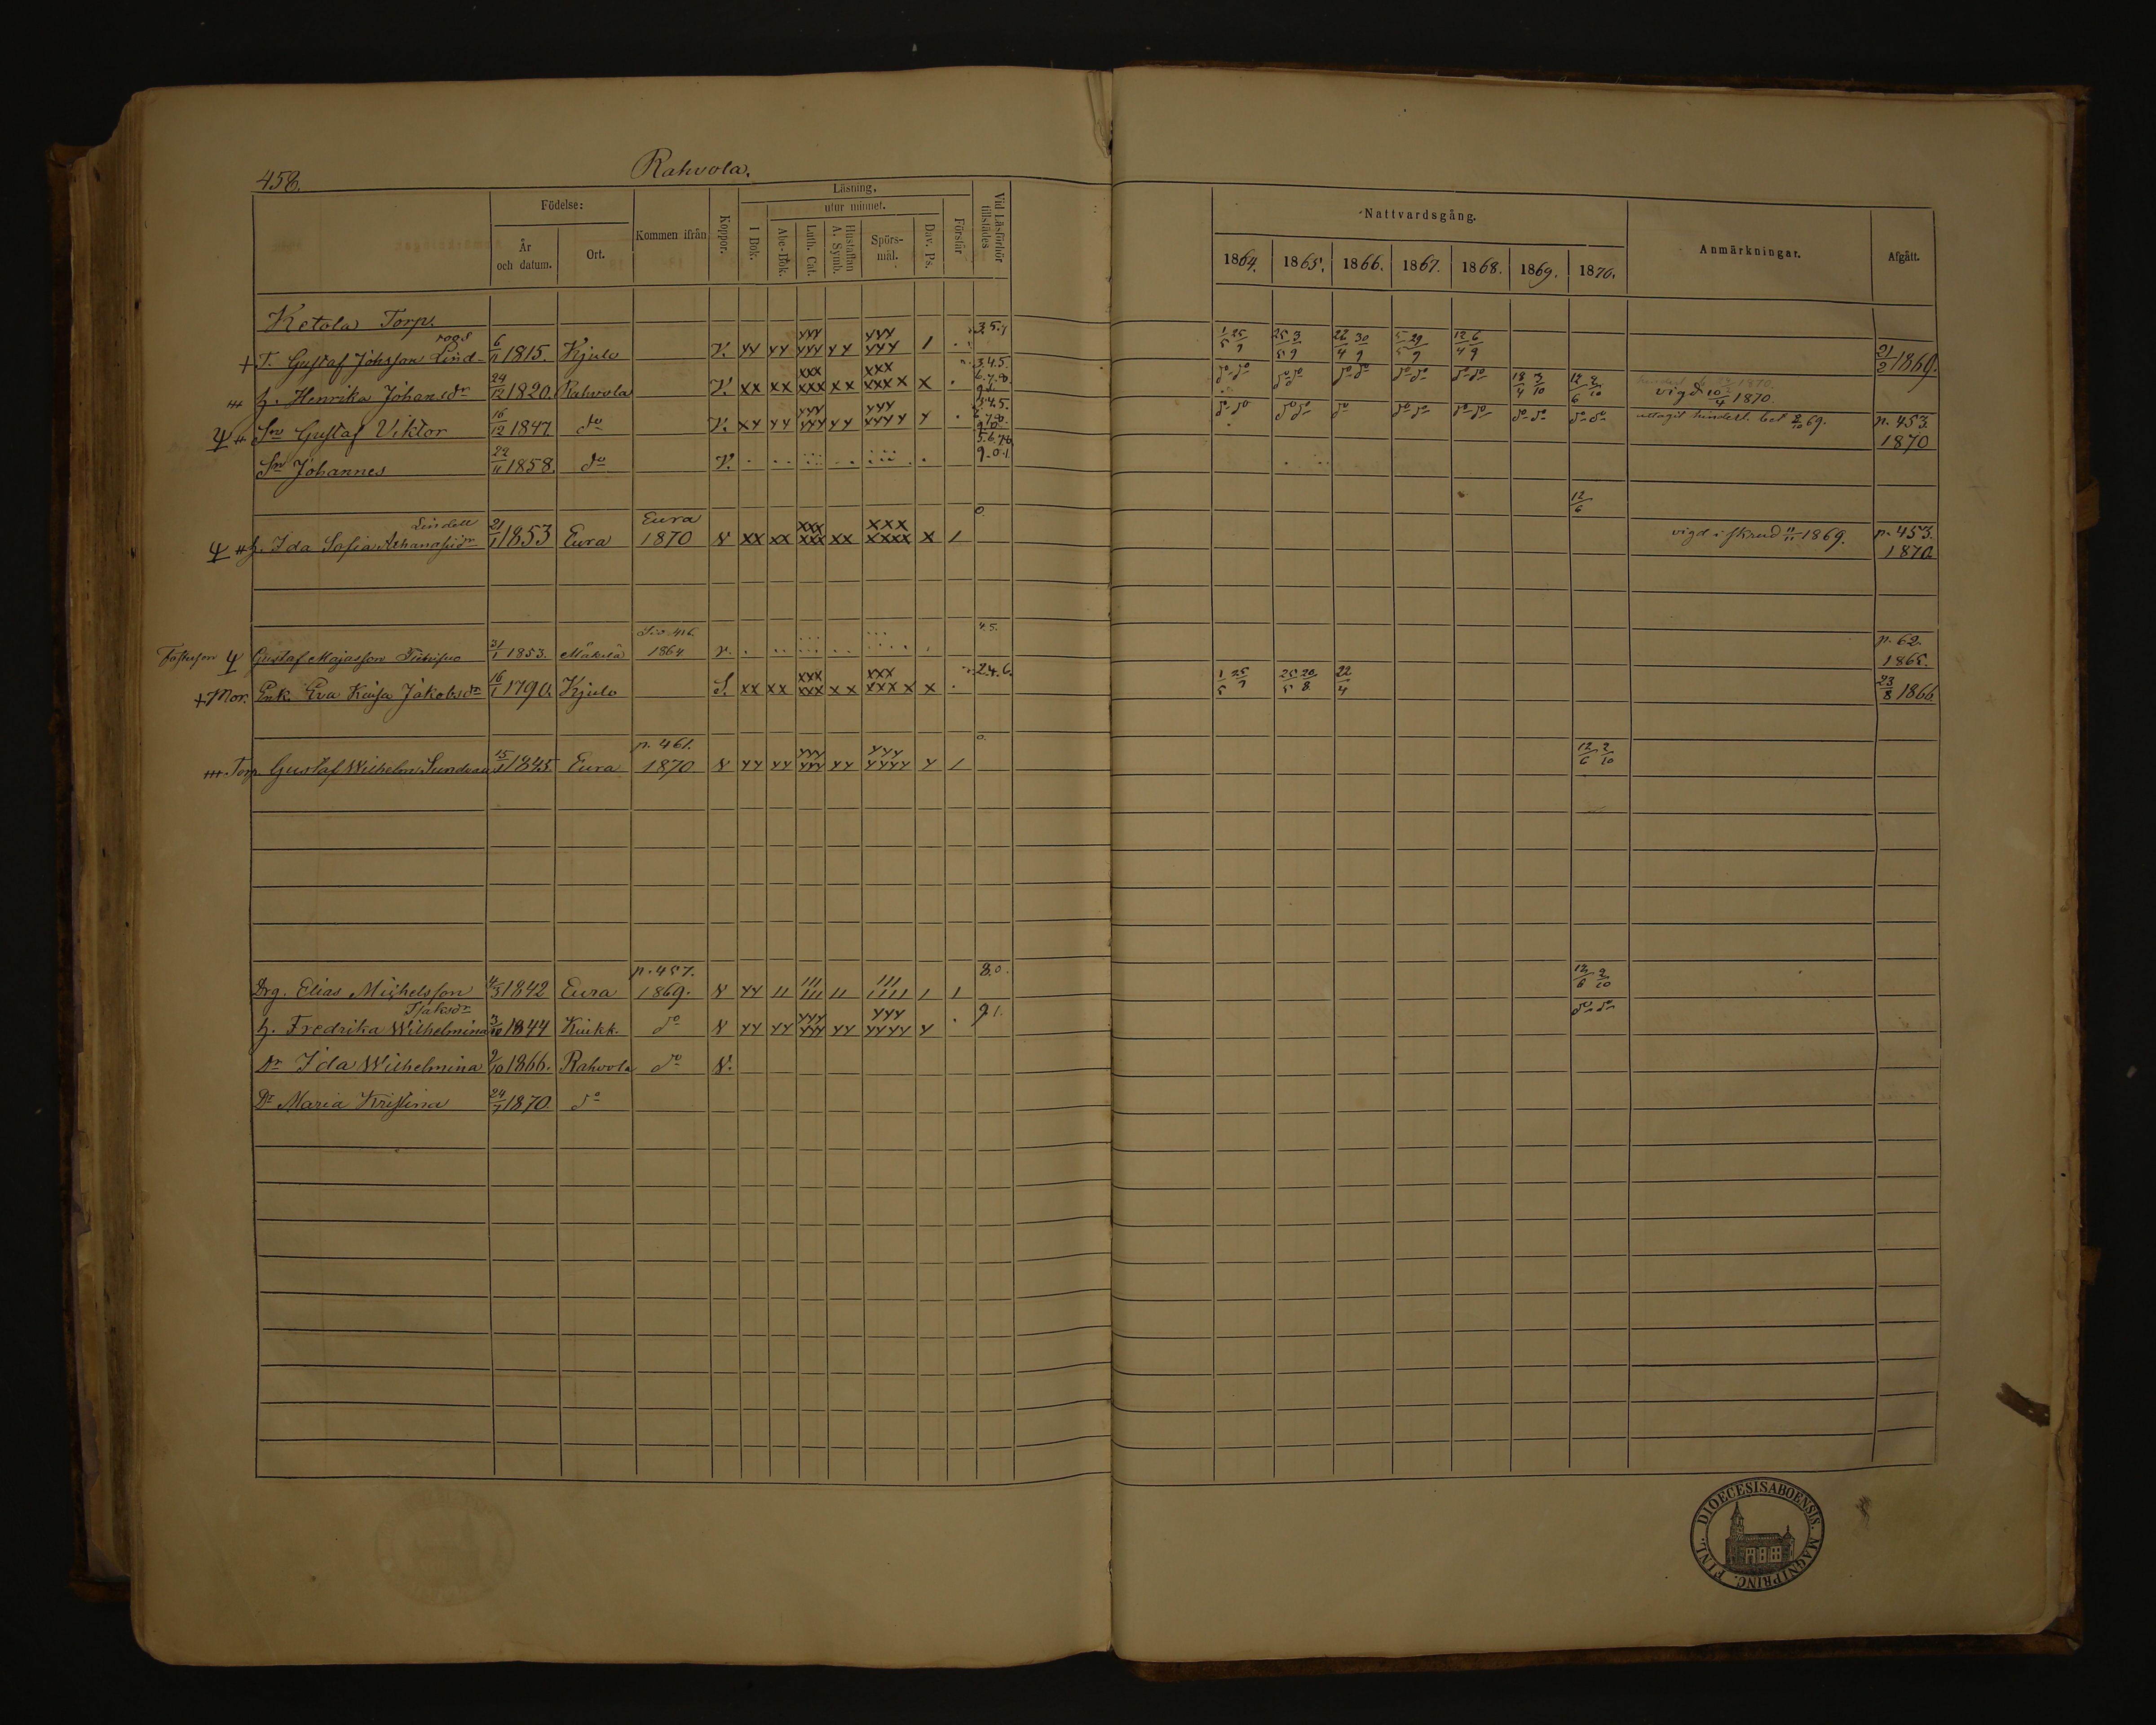 458.
Rahvola.
Födelse:
År och datum.
Ort.
Kommen ifrån
Koppor.
Läsning.
I Bok.
utur minnet.
Abc-Bok.
Luth. Cat.
Hustaflan A. Symb.
Spörs-mål.
Dav. Ps.
Förstår
Vid Läsförhör tillstädes
Nattvardsgång.
1864. 1865. 1866. 1867. 1868. 1869. 1870.
Anmärkningar.
Afgått.
Ketola Torp.
roos
+ T. Gustaf Johsson Lind- 6/11 1815. Kjulo V. yy yy yyy yyy yy yyy yyy 1 3.5.7 1/5 25/9 25/5 3/9 22/4 30/9 5/5 29/9 12/4 6/9 21/2 1869.
h. Henrika Johansdr 24/12 1820. Rahvola V. xx xx xxx xxx xx xxx xxxx x . 3.4.5. 6.7.8. do do do do do do do do do do 18/4 3/10 12/6 2/10 vigd 10/4 1870.
Sn Gustaf Viktor 16/12 1847. do V. xy yy yyy yyy yy yyy yyyy y . 3.4.5. do do do do do do do do do do do do do uttagit hinderl. bet 2/10 69. p. 453. 1870
Sn Johannes 22/11 1858. do V. 5.6.7.8. 9.0.1
Lindell
h. Ida Sofia Athanasiidr 21/1 1853 Eura Eura 1870 N xx xx xxx xxx xx xxx xxxx x 1 0. 12/6 vigd i Skrud 11/11 1869. p. 453. 1870
Fosterson Gustaf Majasson 31/1 1853. Mäkelä 1864 v. 4.5. p. 62. 1865.
+ Mor. Enk. Eva Kaisa Jakobsdr 16/1 1790. Kjulo S. xx xx xxx xxx xx xxx xxxx x . 2.4.6. 1/5 25/9 25/5 20/8 22/4 23/8 1866
Torp. Gustaf Wilhelm 15/1 1845 Eura p. 461. 1870 N yy yy yyy yyy yy yyy yyyy y 1 0. 12/6 2/10
Drg. Elias Michelsson 4/3 1842 Eura p. 457. 1869. N yy 11 111 111 11 111 1111 1 1 8.0. 12/6 2/10
h. Fredrika Wilhelmina 3/10 1844 Kiukk. do N yy yy yyy yyy yy yyy yyyy y . 9.1. do do
Dr Ida Wilhelmina 9/10 1866. Rahvola do N.
Dr Maria Kristina 24/7 1870 do
FINL. DIOECESIS ABOENSIS. MAGNI PRINC.